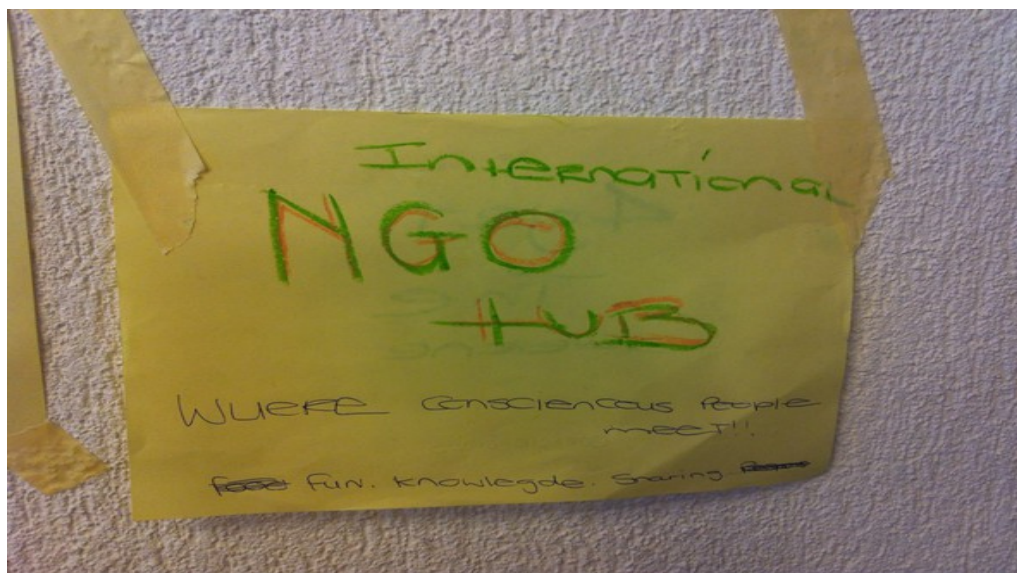 International
NGO
HUB
WHERE Consciencous People
meet!!
Fun. Knowlegde. Sharing.